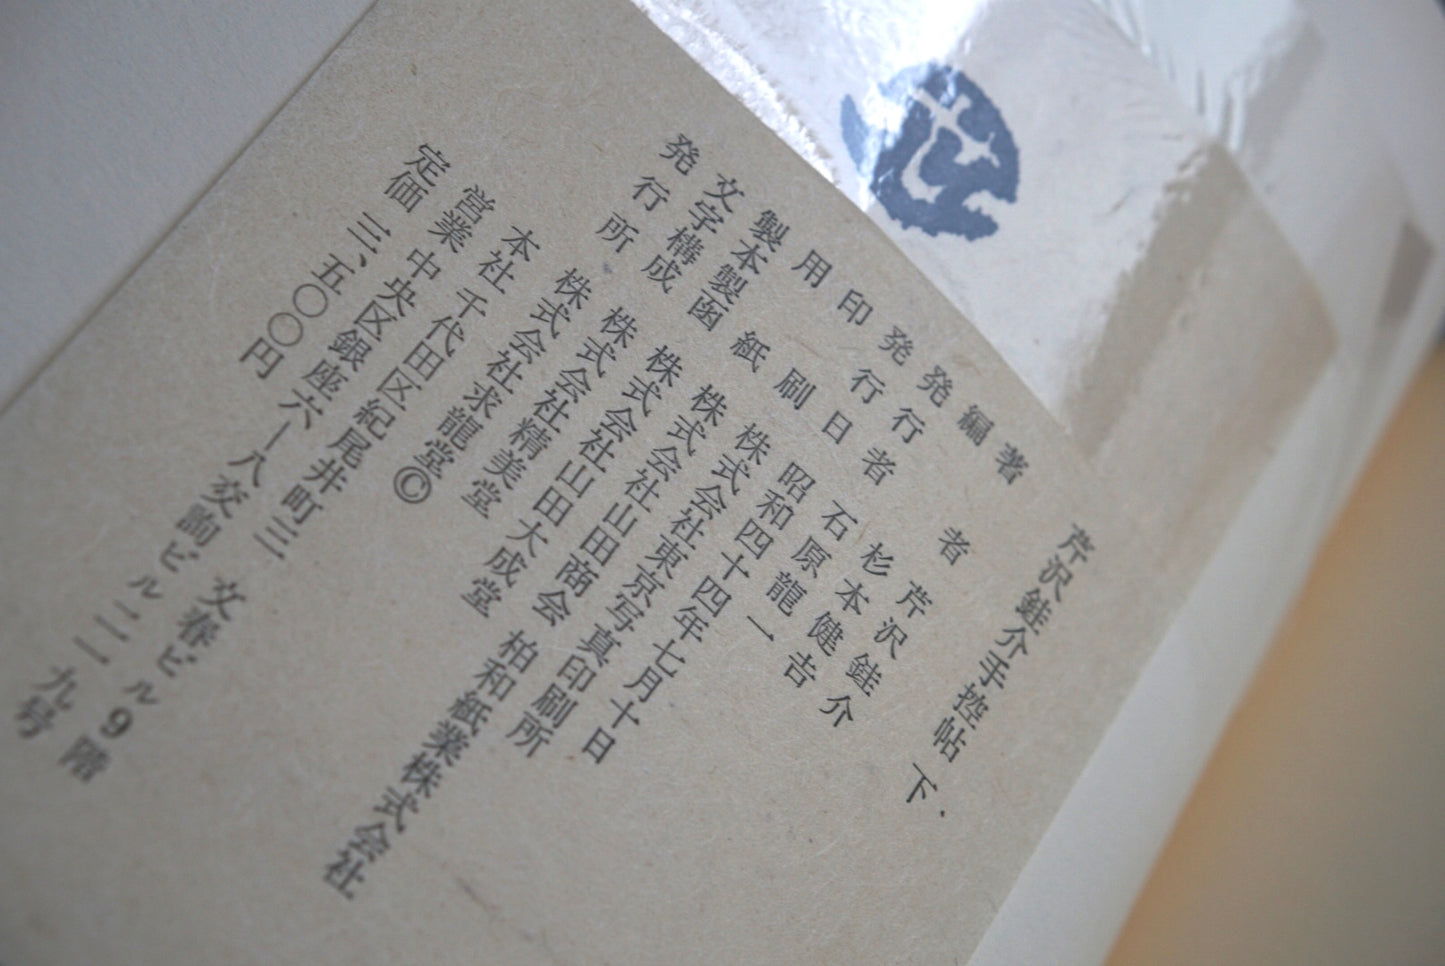 せ
芹沢銈介手控帖 下
著者 芹沢銈介
編 杉本健吉
発行者 石原龍一
発行日 昭和四十四年七月十日
印刷 株式会社東京写真印刷所
用紙 株式会社山田商会 柏和紙業株式会社
製本製函 株式会社山田大成堂
文字構成 株式会社精美堂
発行所 株式会社求龍堂©
本社 千代田区紀尾井町三 文春ビル9階
営業 中央区銀座六ー八交詢ビル二一九号
定価 三、五〇〇円